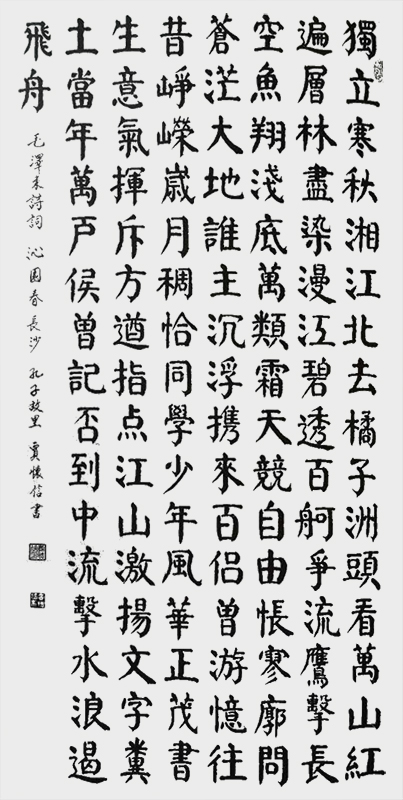 獨立寒秋湘江北去橘子洲頭看萬山紅
遍層林盡染漫江碧透百舸爭流鷹擊長
空魚翔淺底萬類霜天競自由悵寥廓問
蒼茫大地誰主沉浮携來百侣曾游憶往
昔崢嶸嵗月稠恰同學少年風華正茂書
生意氣揮斥方遒指点江山激揚文字糞
土當年萬戸侯曾記否到中流擊水浪遏
飛舟
毛澤東詩詞 沁園春長沙 孔子故里 賈懷信書